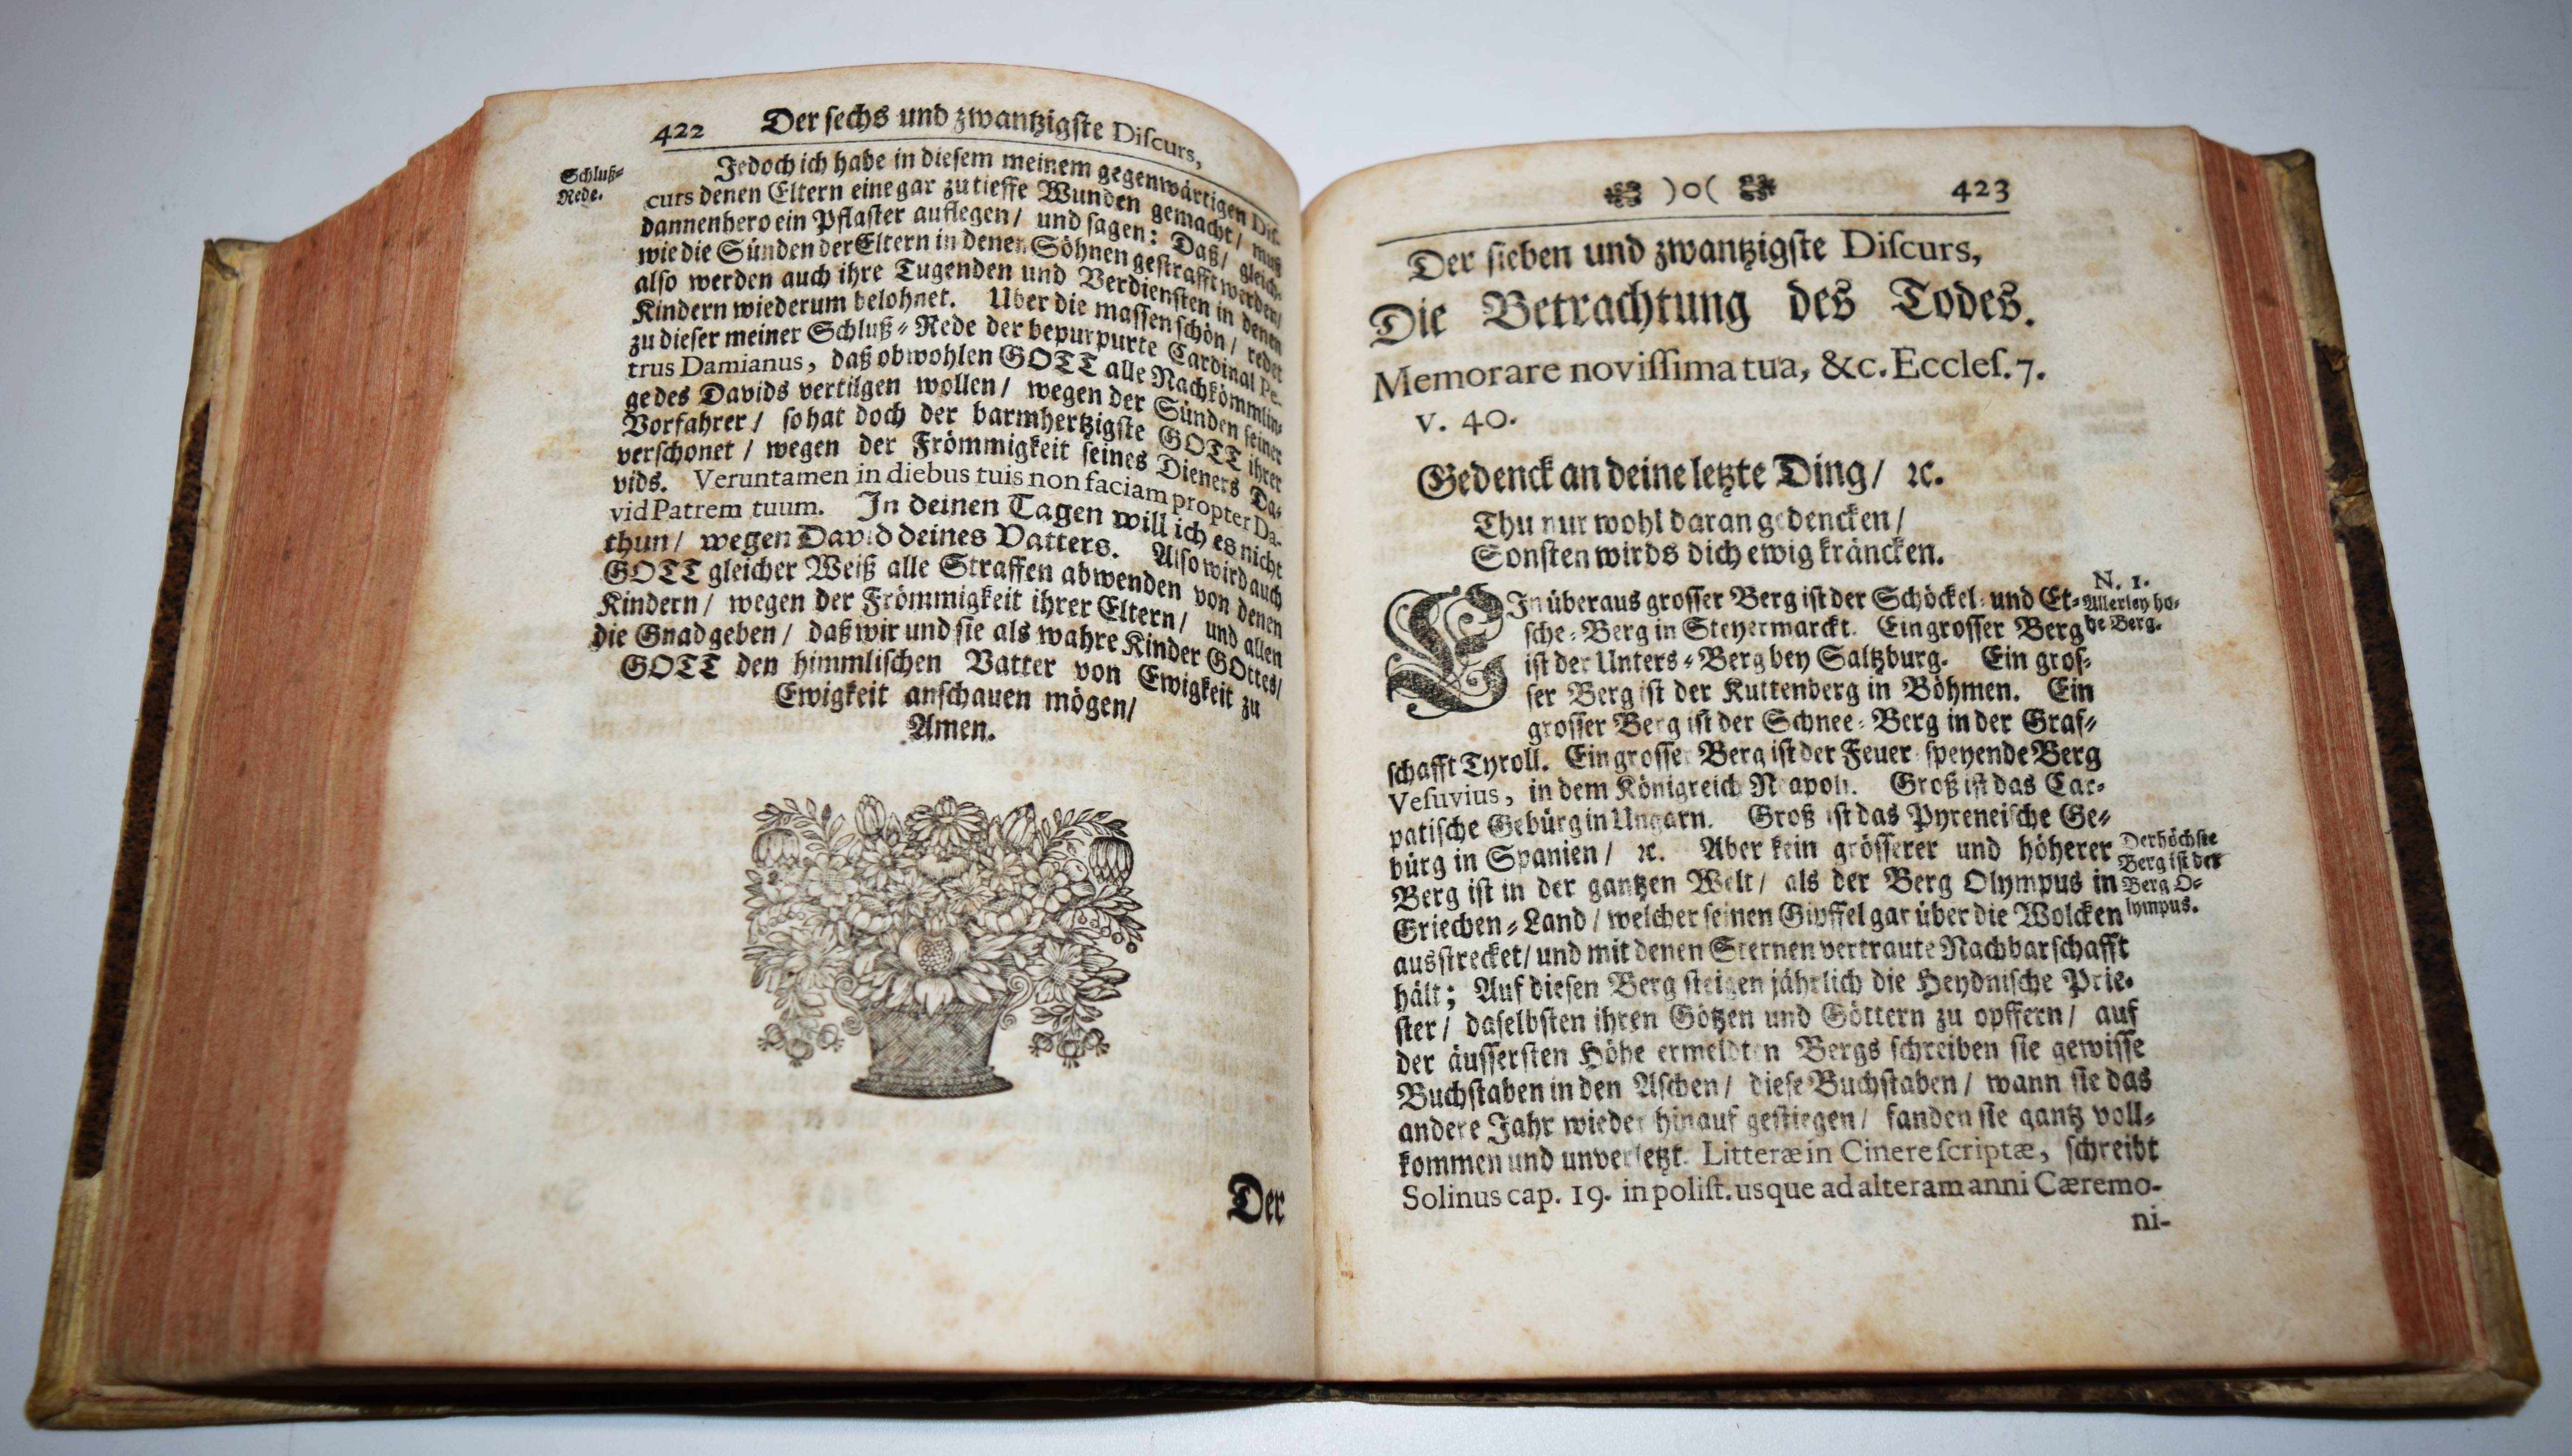 422 Der sechs und zwantzigste Discurs,
Schluß-
Rede.
Jedoch ich habe in diesem meinem gegenwärtigen Dis-
curs denen Eltern eine gar zu tieffe Wunden gemacht / muß
dannenhero ein Pflaster auflegen / und sagen: Daß / gleich-
wie die Sünden der Eltern in denen Söhnen gestrafft werden /
also werden auch ihre Tugenden und Verdiensten in denen
Kindern wiederum belohnet. Uber die massen schön / redet
zu dieser meiner Schluß-Rede der bepurpurte Cardinal Pe-
trus Damianus, daß obwohlen GOTT alle Nachkömmlin-
ge des Davids vertilgen wollen / wegen der Sünden seiner
Vorfahrer / so hat doch der barmhertzigste GOTT ihrer
verschonet / wegen der Frömmigkeit seines Dieners Da-
vids. Veruntamen in diebus tuis non faciam propter Da-
vid Patrem tuum. In deinen Tagen will ich es nicht
thun / wegen David deines Vatters. Also wird auch
GOTT gleicher Weiß alle Straffen abwenden von denen
Kindern / wegen der Frömmigkeit ihrer Eltern / und allen
die Gnad geben / daß wir und sie als wahre Kinder GOttes /
GOTT den himmlischen Vatter von Ewigkeit zu
Ewigkeit anschauen mögen /
Amen.
Der
)o( 423
Der sieben und zwantzigste Discurs,
Die Betrachtung des Todes.
Memorare novissima tua, &c. Eccles. 7.
v. 40.
Gedenck an deine letzte Ding / ꝛc.
Thu nur wohl daran gedencken /
Sonsten wirds dich ewig kräncken.
N. 1.
Allerley ho-
he Berg.
EIn überaus grosser Berg ist der Schöckel- und Et-
sche-Berg in Steyermarckt. Ein grosser Berg
ist der Unters-Berg bey Saltzburg. Ein gros-
ser Berg ist der Kuttenberg in Böhmen. Ein
grosser Berg ist der Schnee-Berg in der Graf-
schafft Tyroll. Ein grosser Berg ist der Feuer-speyende Berg
Vesuvius, in dem Königreich Neapoli. Groß ist das Car-
patische Gebürg in Ungarn. Groß ist das Pyreneische Ge-
bürg in Spanien / ꝛc. Aber kein grösserer und höherer
Berg ist in der gantzen Welt / als der Berg Olympus in
Griechen-Land / welcher seinen Gipffel gar über die Wolcken
ausstrecket / und mit denen Sternen vertraute Nachbarschafft
hält; Auf diesen Berg steigen jährlich die Heydnische Prie-
ster / daselbsten ihren Götzen und Göttern zu opffern / auf
der äussersten Höhe ermeldten Bergs schreiben sie gewisse
Buchstaben in den Aschen / diese Buchstaben / wann sie das
andere Jahr wieder hinauf gestiegen / fanden sie gantz voll-
kommen und unverletzt. Litteræ in Cinere scriptæ, schreibt
Solinus cap. 19. in polist. usque ad alteram anni Cæremo-
ni-
Der höchste
Berg ist der
Berg O-
lympus.